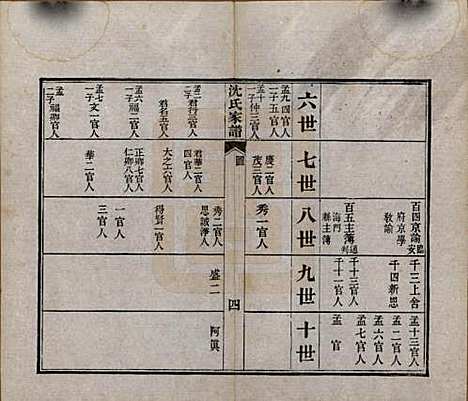 六世
七世
八世
九世
十世
百四京諭臨安
府京學
教諭
百五主簿通判
海門
縣主簿
千三上舍
千四新恩
千十三官人
千十一官人
孟十三官人
孟二官人
孟六官人
孟七官人
孟官
孟九四官人
二子五官人
孟十
一子仲三官人
慶二官人
茂三官人
秀一官人
沈氏家譜
四
孟二君行三官人
二子
君名五官人
孟六福二官人
一子
孟七文一官人
一子
孟八
二子福卿官人
君華二官人
四官人
大之六官人
正卿七官人
仁卿八官人
華二官人
秀二官人
思誠淨人
得賢一官人
一官人
三官人
盛二
阿眞